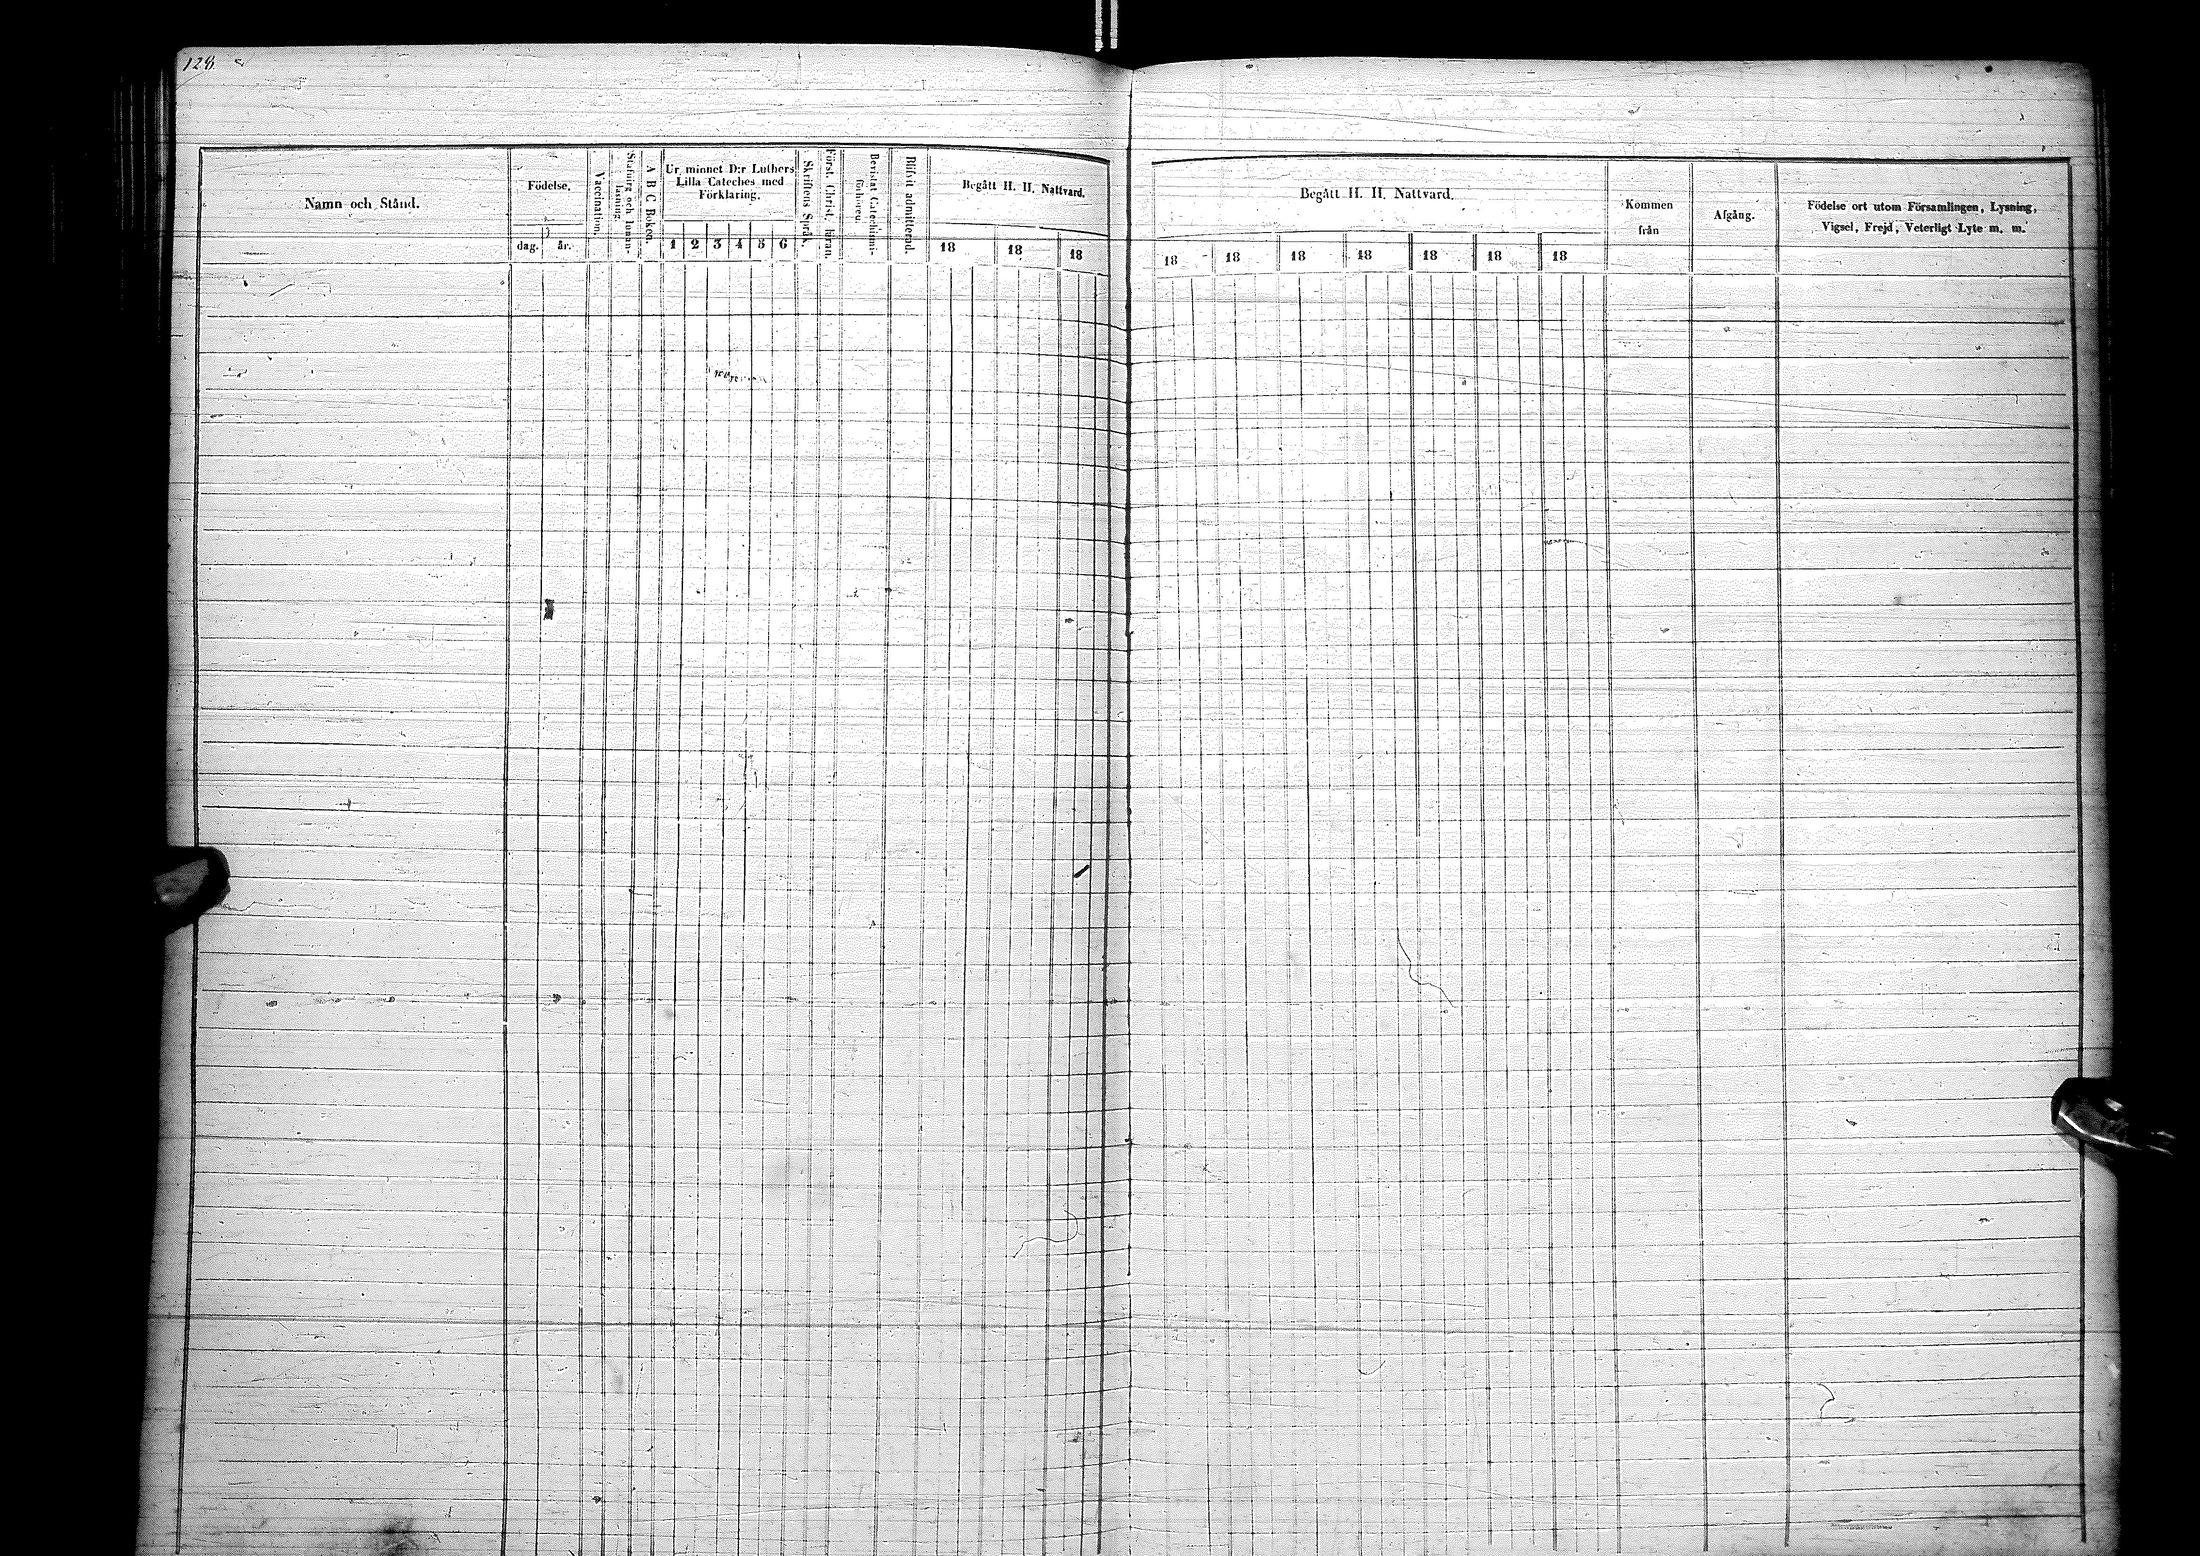 128
Namn och Stånd.
Födelse.
dag.
år.
Vaccination.
Stafning och Innan-
läsning.
A B C Boken.
Ur minnet D:r Luthers
Lilla Cateches med
Förklaring.
1 2 3 4 5 6
Skriftens Språk.
Först. Christ. läran.
Bevistat Catechismi-
förhören.
Blifvit admitterad.
Begått H. H. Nattvard.
18 18 18
Begått H. H. Nattvard.
18 18 18 18 18 18 18
Kommen
från
Afgång.
Födelse ort utom Församlingen, Lysning,
Vigsel, Frejd, Veterligt Lyte m. m.